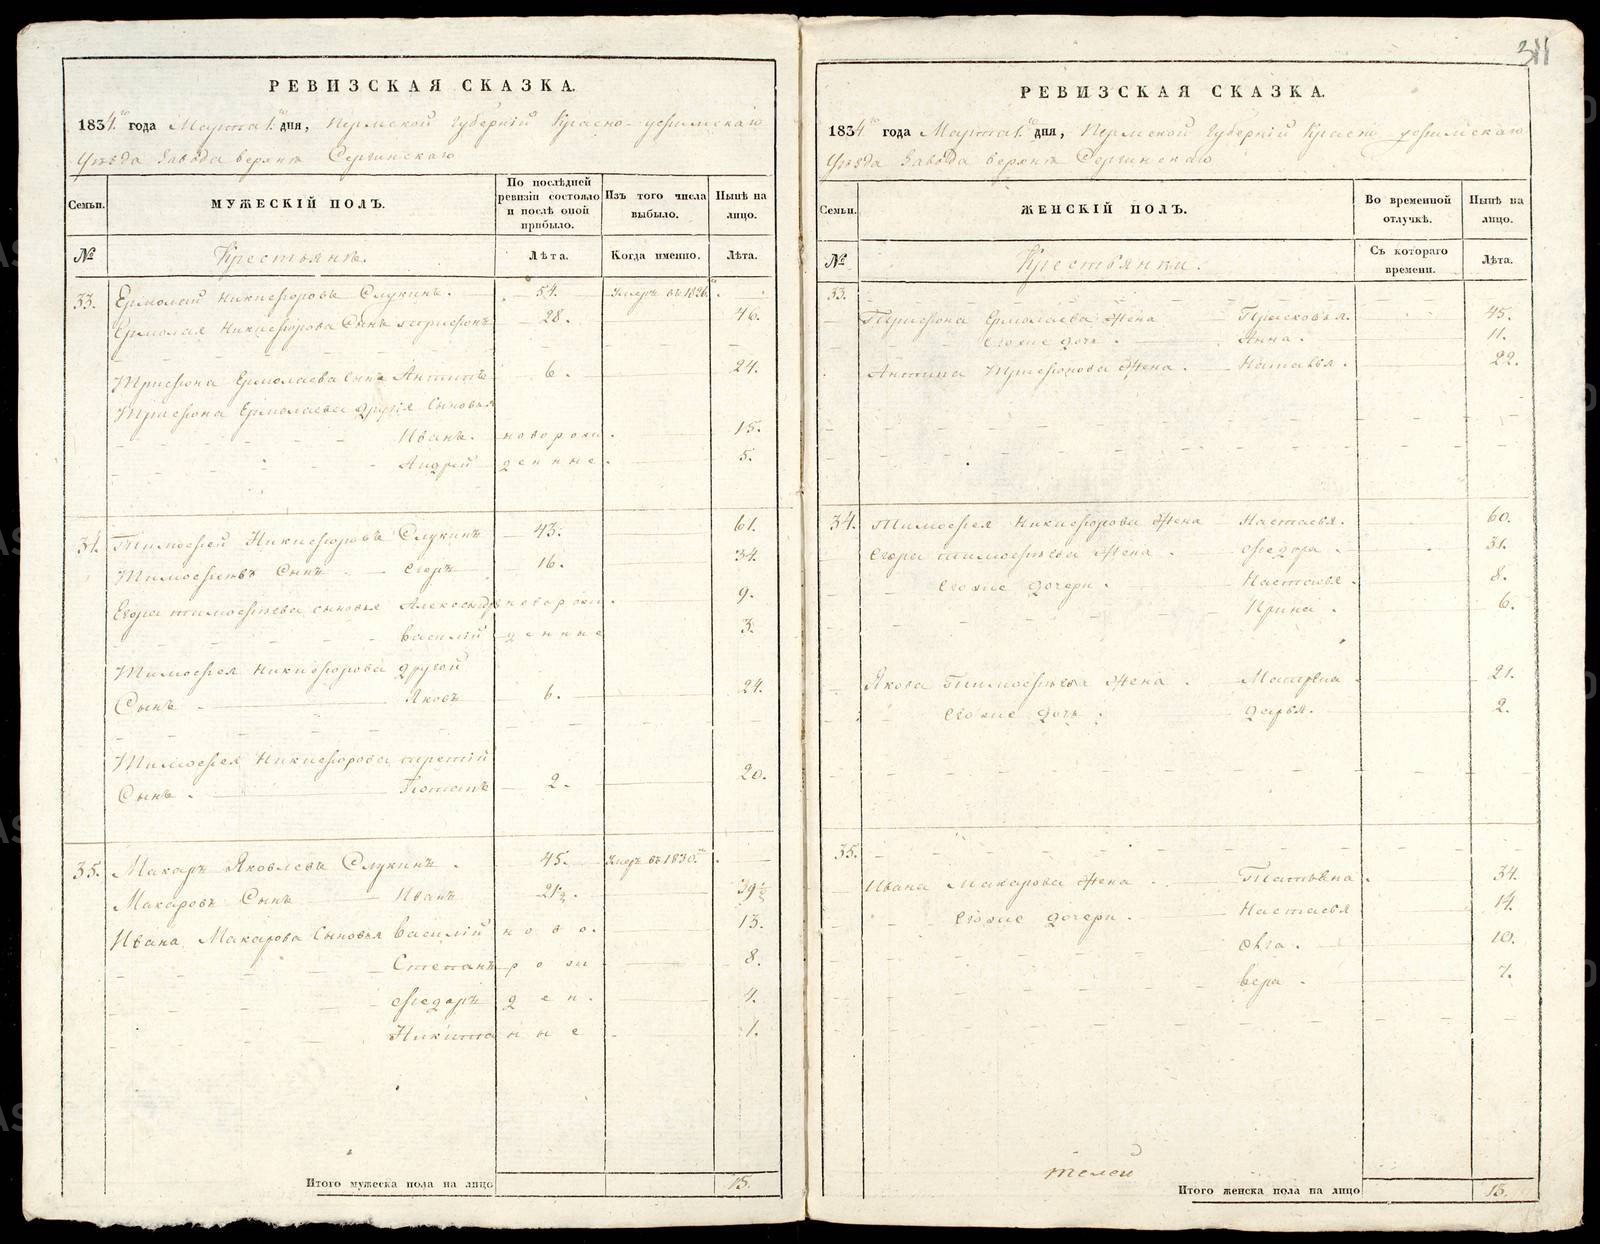 311
РЕВИЗСКАЯ СКАЗКА.
1834го года Марта 1го дня, Пермской Губернiй Красно-уфимскаго
Уѣзда Завода верхнѣ Сергинскаго
Семьи.
МУЖЕСКІЙ ПОЛЪ.
По послѣдней ревизіи состояло и послѣ оной прибыло.
Изъ того числа выбыло.
Нынѣ на лицо.
№
Крестьянѣ.
Лѣта.
Когда именно.
Лѣта.
33. Ермолай Никифоровъ Слукинъ. 54. Умеръ въ 1826.
Ермолая Никифорова Сынъ трифонъ 28. 46.
Трифона Ермолаева Сынъ Антипъ 6. 24.
Трифона Ермолаева другiя Сыновья
Иванъ. новорож 15.
Андрей денные. 5.
34. Тимофей Никифоровъ Слукинъ 43. 61.
Тимофеевъ Сынъ Егоръ 16. 34.
Егора тимофѣева сыновья Александръ новорож 9.
василiй денные 3.
Тимофея Никифорова другой
Сынъ Яковъ 6. 24.
Тимофея Никифорова третiй
Сынъ. Потапъ 2. 20.
35. Макаръ Яковлевъ Слукинъ. 45. Умеръ въ 1830.
Макаровъ Сынъ Иванъ 21½. 39½
Ивана Макарова Сыновья василiй ново. 13.
Степанъ рож 8.
Федоръ ден. 4.
Никита ные 1.
Итого мужеска пола на лицо 15.
РЕВИЗСКАЯ СКАЗКА.
1834го года Марта 1го дня, Пермской Губернiй Красно уфимскаго
Уѣзда Завода верхнѣ Сергинскаго
Семьи.
ЖЕНСКІЙ ПОЛЪ.
Во временной отлучкѣ.
Нынѣ на лицо.
№
Крестьянки.
Съ котораго времени.
Лѣта.
33.
Трифона Ермолаева жена Прасковья. 45.
Егоже дочь. Анна. 11.
Антипа Трифонова жена. Наталья. 22.
34. Тимофея Никифорова жена Настасья. 60.
Егора тимофѣева жена. федора. 31.
Егоже дочери. Настасья. 8.
Ирина. 6.
Якова Тимофѣева жена. Матрена 21.
Егоже дочь. дарья. 2.
35.
Ивана Макарова жена. Татьяна 34.
Егоже дочери. Настасья 14.
10.
вера. 7.
Итого женска пола на лицо 13.